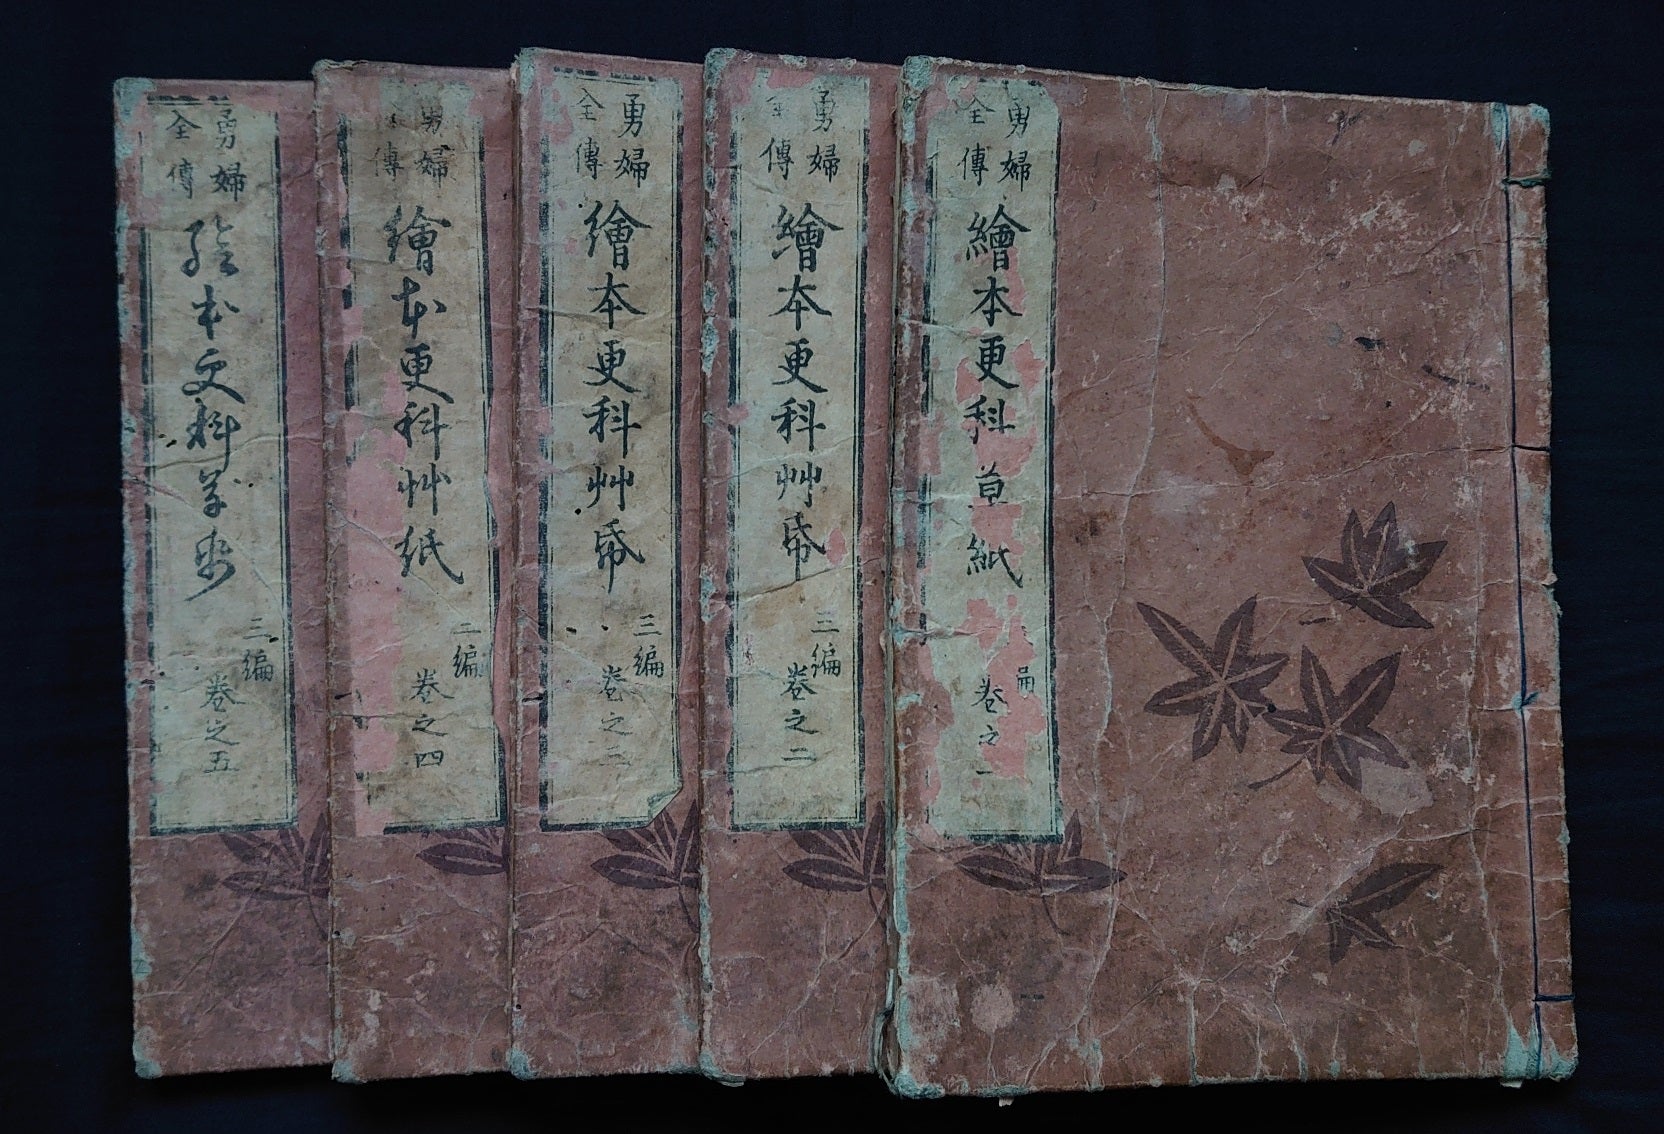 勇婦
全傳
繪本更科草紙
卷之一
勇婦
全傳
繪本更科艸帋
三編
卷之二
勇婦
全傳
繪本更科艸帋
三編
卷之三
勇婦
全傳
繪本更科艸紙
編
卷之四
勇婦
全傳
絵本更科草帋
三編
卷之五